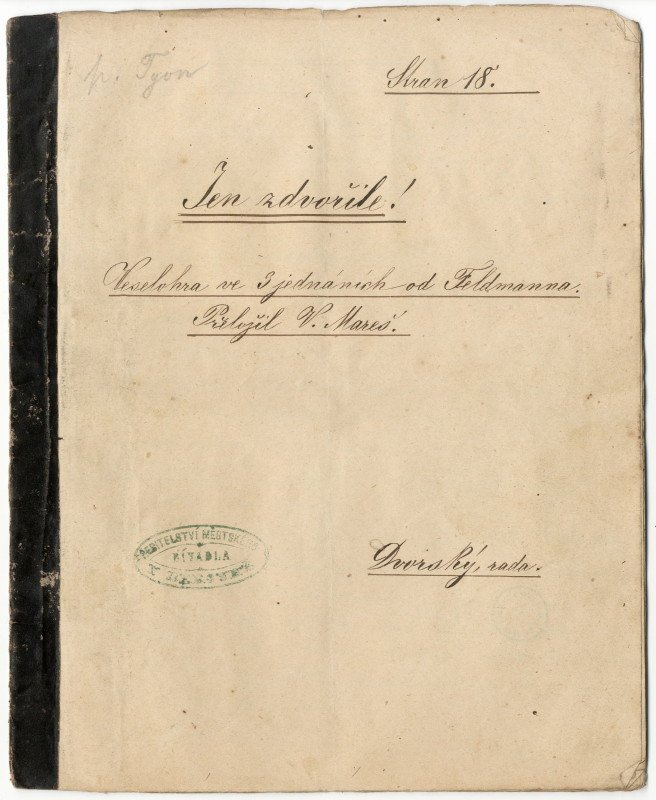 p. Tyon
Stran 18.
Jen zdvořile!
Veselohra ve 3 jednáních od Feldmanna.
Přeložil V. Mareš.
ŘEDITELSTVÍ MĚSTSKÉHO
DIVADLA
Dvorský, rada.